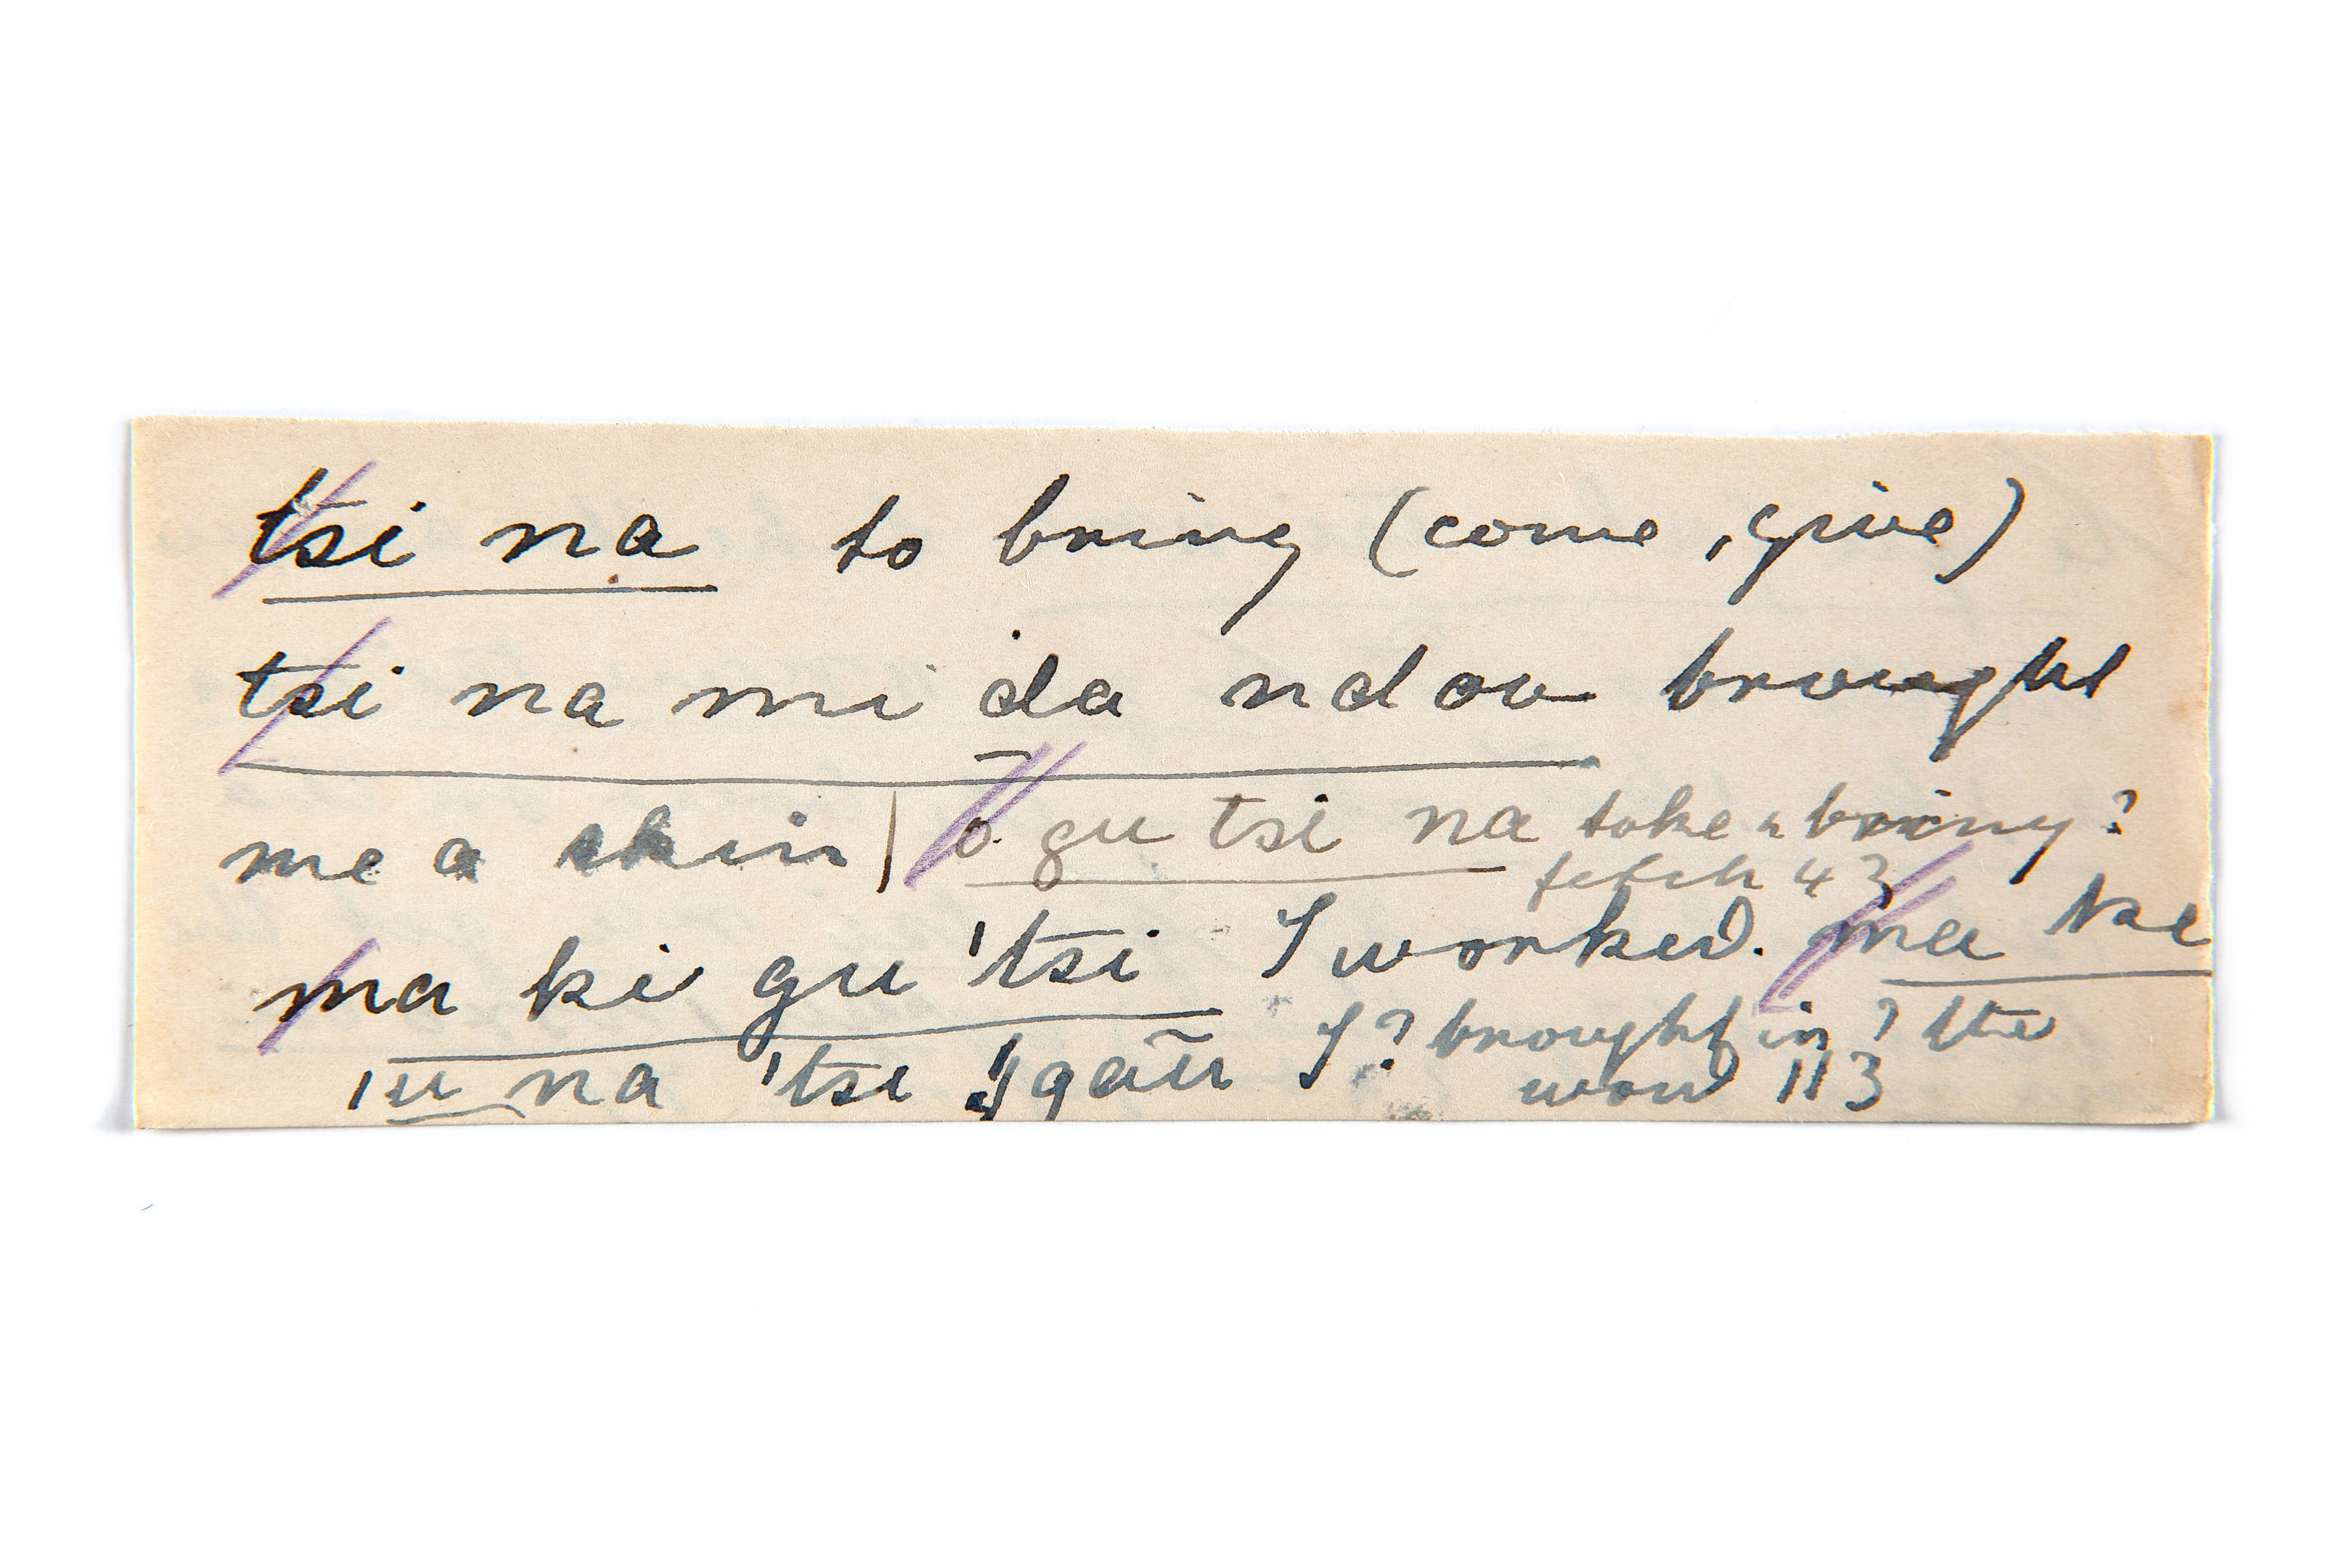 tsi na to bring (come, give)
tsi na mi da ndou brought
me a skin | o. gu tsi na take & bring?
fetch 43
ma ki gu 'tsi I worked. ma ke
ǀu na 'tsi gaū I? brought in? the
word 113